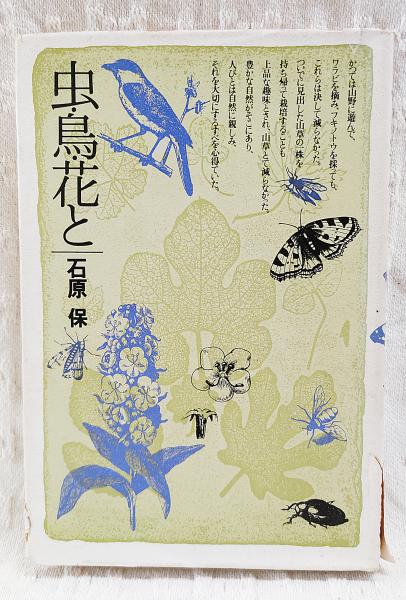 虫・鳥・花と
石原 保
かつては山野に遊んで、
ワラビを摘み、フキノトウを採っても、
これらは決して減らなかった。
ついでに見出した山草の一株を
持ち帰って栽培することも
上品な趣味とされ、山草とて減らなかった。
豊かな自然がそこにあり、
人びとは自然に親しみ、
それを大切にするすべを心得ていた。